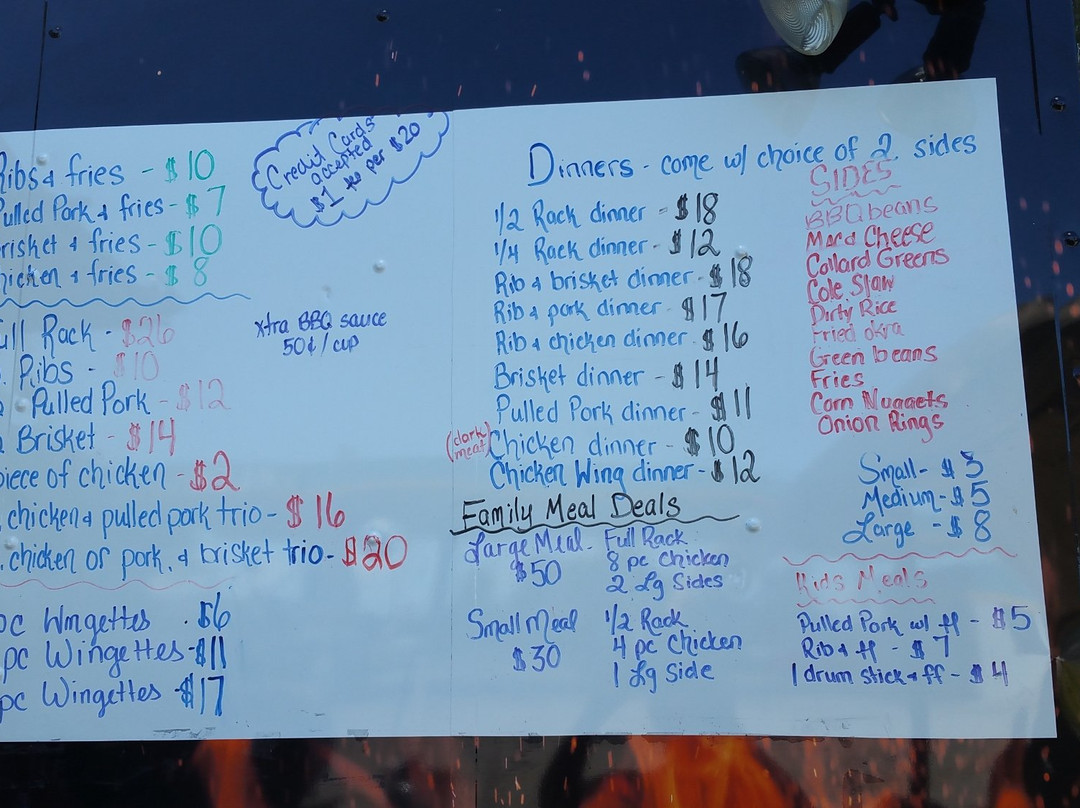 Ribs & fries - $10
Pulled Pork & fries - $7
risket & fries - $10
hicken & fries - $8
ull Rack - $26
Ribs - $10
Pulled Pork - $12
Brisket - $14
piece of chicken - $2
chicken & pulled pork trio - $16
chicken or pork, & brisket trio - $20
pc Wingettes . $6
pc Wingettes - $11
pc Wingettes - $17
Credit Cards
accepted
$1 per $20
xtra BBQ sauce
50¢/cup
Dinners - come w/ choice of 2 sides
1/2 Rack dinner - $18
1/4 Rack dinner - $12
Rib & brisket dinner - $18
Rib & pork dinner - $17
Rib & chicken dinner - $16
Brisket dinner - $14
Pulled Pork dinner - $11
(dark meat) Chicken dinner - $10
Chicken Wing dinner - $12
SIDES
BBQ beans
Mac & Cheese
Collard Greens
Cole Slaw
Dirty Rice
Fried okra
Green beans
Fries
Corn Nuggets
Onion Rings
Small - $3
Medium - $5
Large - $8
Family Meal Deals
Large Meal - Full Rack
$50 8 pc Chicken
2 Lg Sides
Small Meal 1/2 Rack
$30 4 pc Chicken
1 Lg Side
Kids Meals
Pulled Pork w/ ff - $5
Rib & ff - $7
1 drum stick & ff - $4